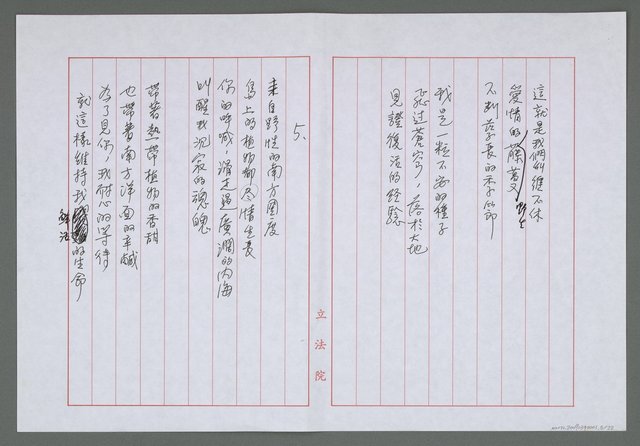 這就是我們糾纏不休
愛情的藤蔓
野生
不斷芽長的
我是一粒不安的種子
飛過蒼穹，落於大地
見證復活的經驗
立法院
5、
來自野性的南方國度
島上的植物都盡情生長
你的呼喊，滑走過廣濶的內海
叫醒我沉寂的魂魄
帶著熱帶植物的香甜
也帶著南方洋面的辛鹹
為了見你，我耐心的等待
就這樣維持我的生命
鮮活